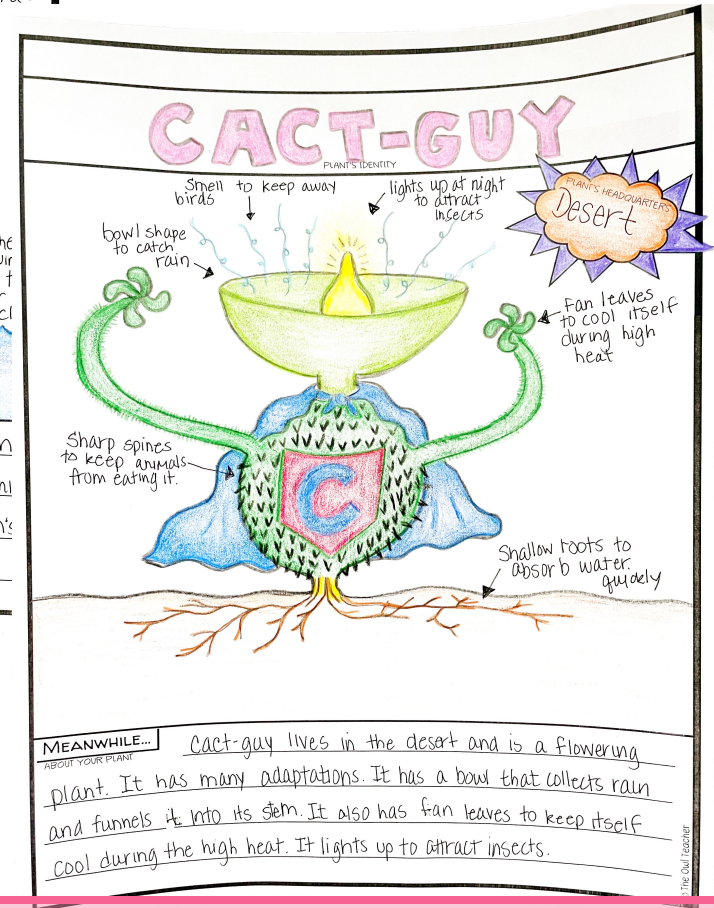 CACT-GUY
PLANT'S IDENTITY
Smell to keep away
birds
lights up at night
to attract
insects
PLANT'S HEADQUARTERS
Desert
bowl shape
to catch
rain
Fan leaves
to cool itself
during high
heat
Sharp spines
to keep animals
from eating it.
C
Shallow roots to
absorb water
quickly
MEANWHILE...
ABOUT YOUR PLANT
Cact-guy lives in the desert and is a flowering
plant. It has many adaptations. It has a bowl that collects rain
and funnels it into its stem. It also has fan leaves to keep itself
cool during the high heat. It lights up to attract insects.
The Owl Teacher